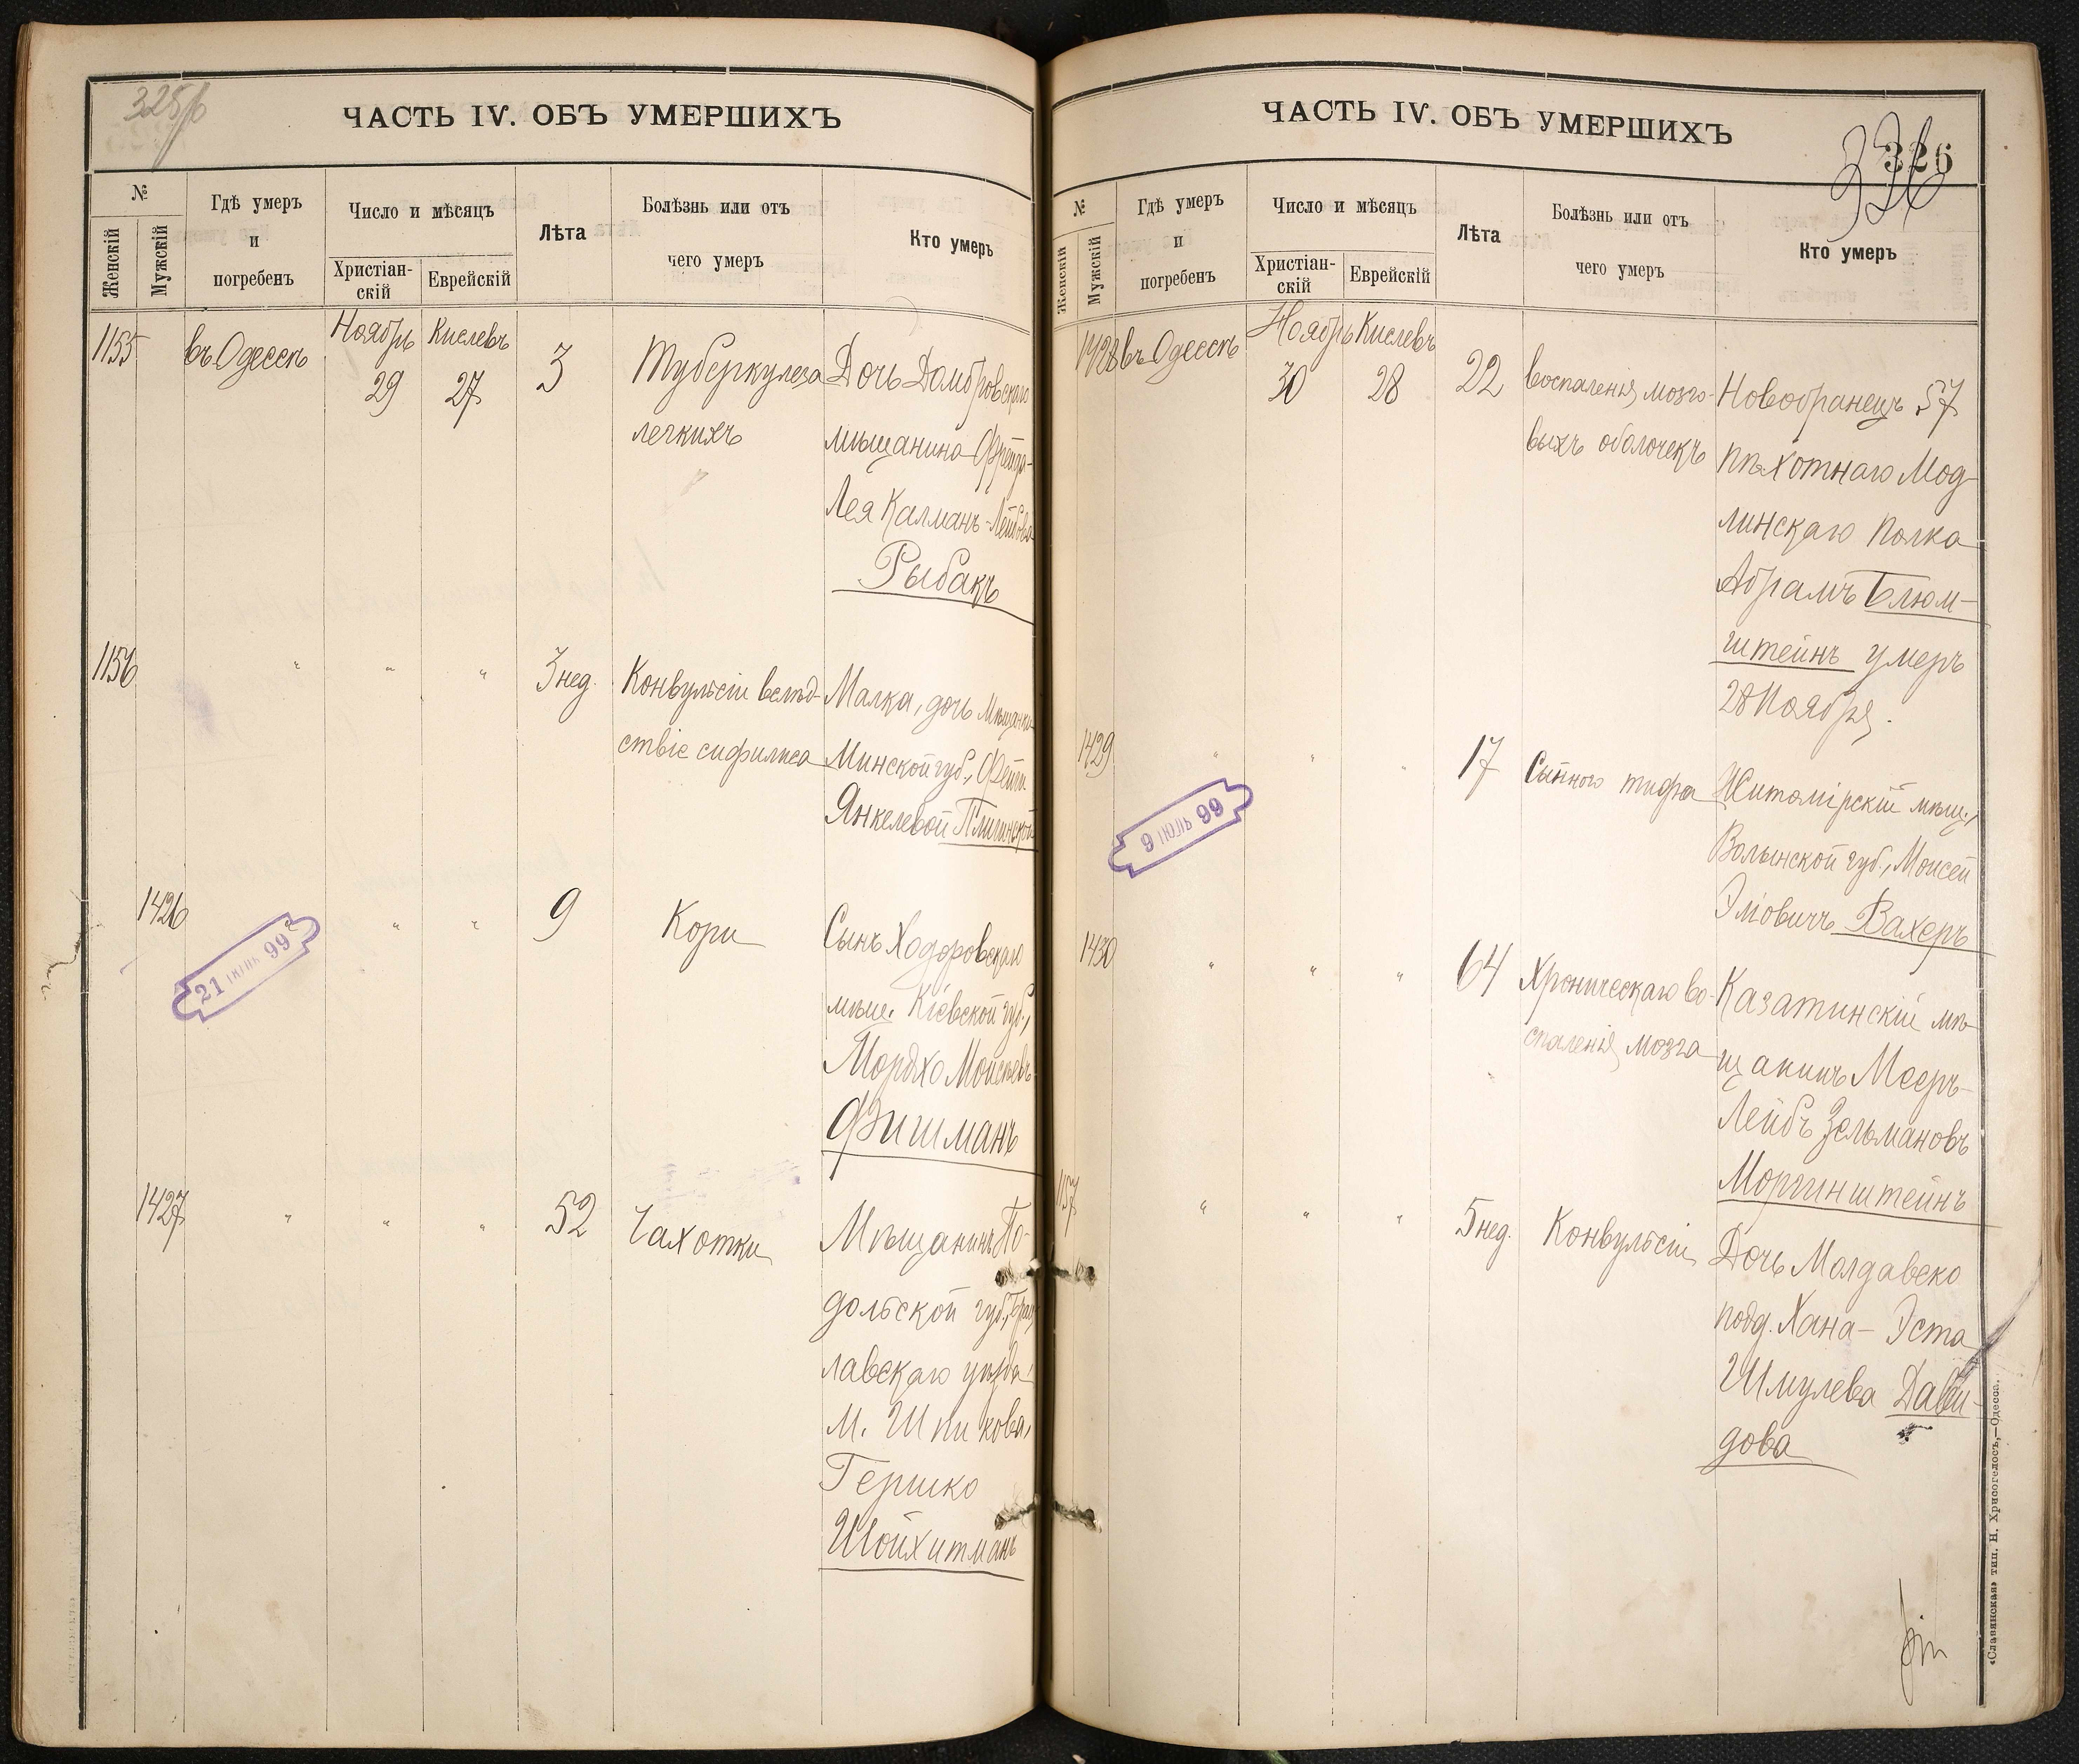 325/б
ЧАСТЬ IV. ОБЪ УМЕРШИХЪ
№
Женскій
Мужскій
Гдѣ умеръ
и
погребенъ
Число и мѣсяцъ
Христіан-
скій
Еврейскій
Лѣта
Болѣзнь или отъ
чего умеръ
Кто умеръ
1155 въ Одессѣ Ноябрь 29 Кислевъ 27 3
Туберкулеза
легкихъ
Дочь Домбровскаго
мѣщанина Фрейда-
Лея Калманъ-Лейбова
Рыбакъ
1156 " " " 3 нед.
Конвульсіи вслѣд-
ствіе сифилиса
Малка, дочь мѣщанки
Минской губ., Фейги
Янкелевой
1426 " " 9 Кори
Сынъ Ходоровскаго
мѣщ. Кіевской губ.,
Мордхо Моисеевъ
Фишманъ
21 ІЮНЬ 99
1427 " " " 52 Чахотки
Мѣщанинъ По-
дольской губ., Брац-
лавскаго уѣзда
м. Шпикова,
Гершко
Шойхитманъ
ЧАСТЬ IV. ОБЪ УМЕРШИХЪ
326
326
№
Женскій
Мужскій
Гдѣ умеръ
и
погребенъ
Число и мѣсяцъ
Христіан-
скій
Еврейскій
Лѣта
Болѣзнь или отъ
чего умеръ
Кто умеръ
1428 въ Одессѣ Ноябрь 30 Кислевъ 28 22
воспаленія мозго-
выхъ оболочекъ
Новобранецъ 57
пѣхотнаго Мод-
линскаго полка
Абрамъ Блюм-
штейнъ умеръ
28 Ноября.
1429 " " " 17 Сыпного тифа
Житомірскій мѣщ.,
Волынской губ., Моисей
Вахеръ
9 ІЮНЯ 99
1430 " " " 64
Хроническаго во-
спаленія мозга
Казатинскій мѣ-
щанинъ Мееръ-
Лейбъ Зельмановъ
Моргинштейнъ
1157 " " " 5 нед. Конвульсіи
Дочь Молдавско
подд. Хана-Эста
Шмулева Дави-
дова
«Славянская» тип. Н. Хрисогелосъ,—Одесса.